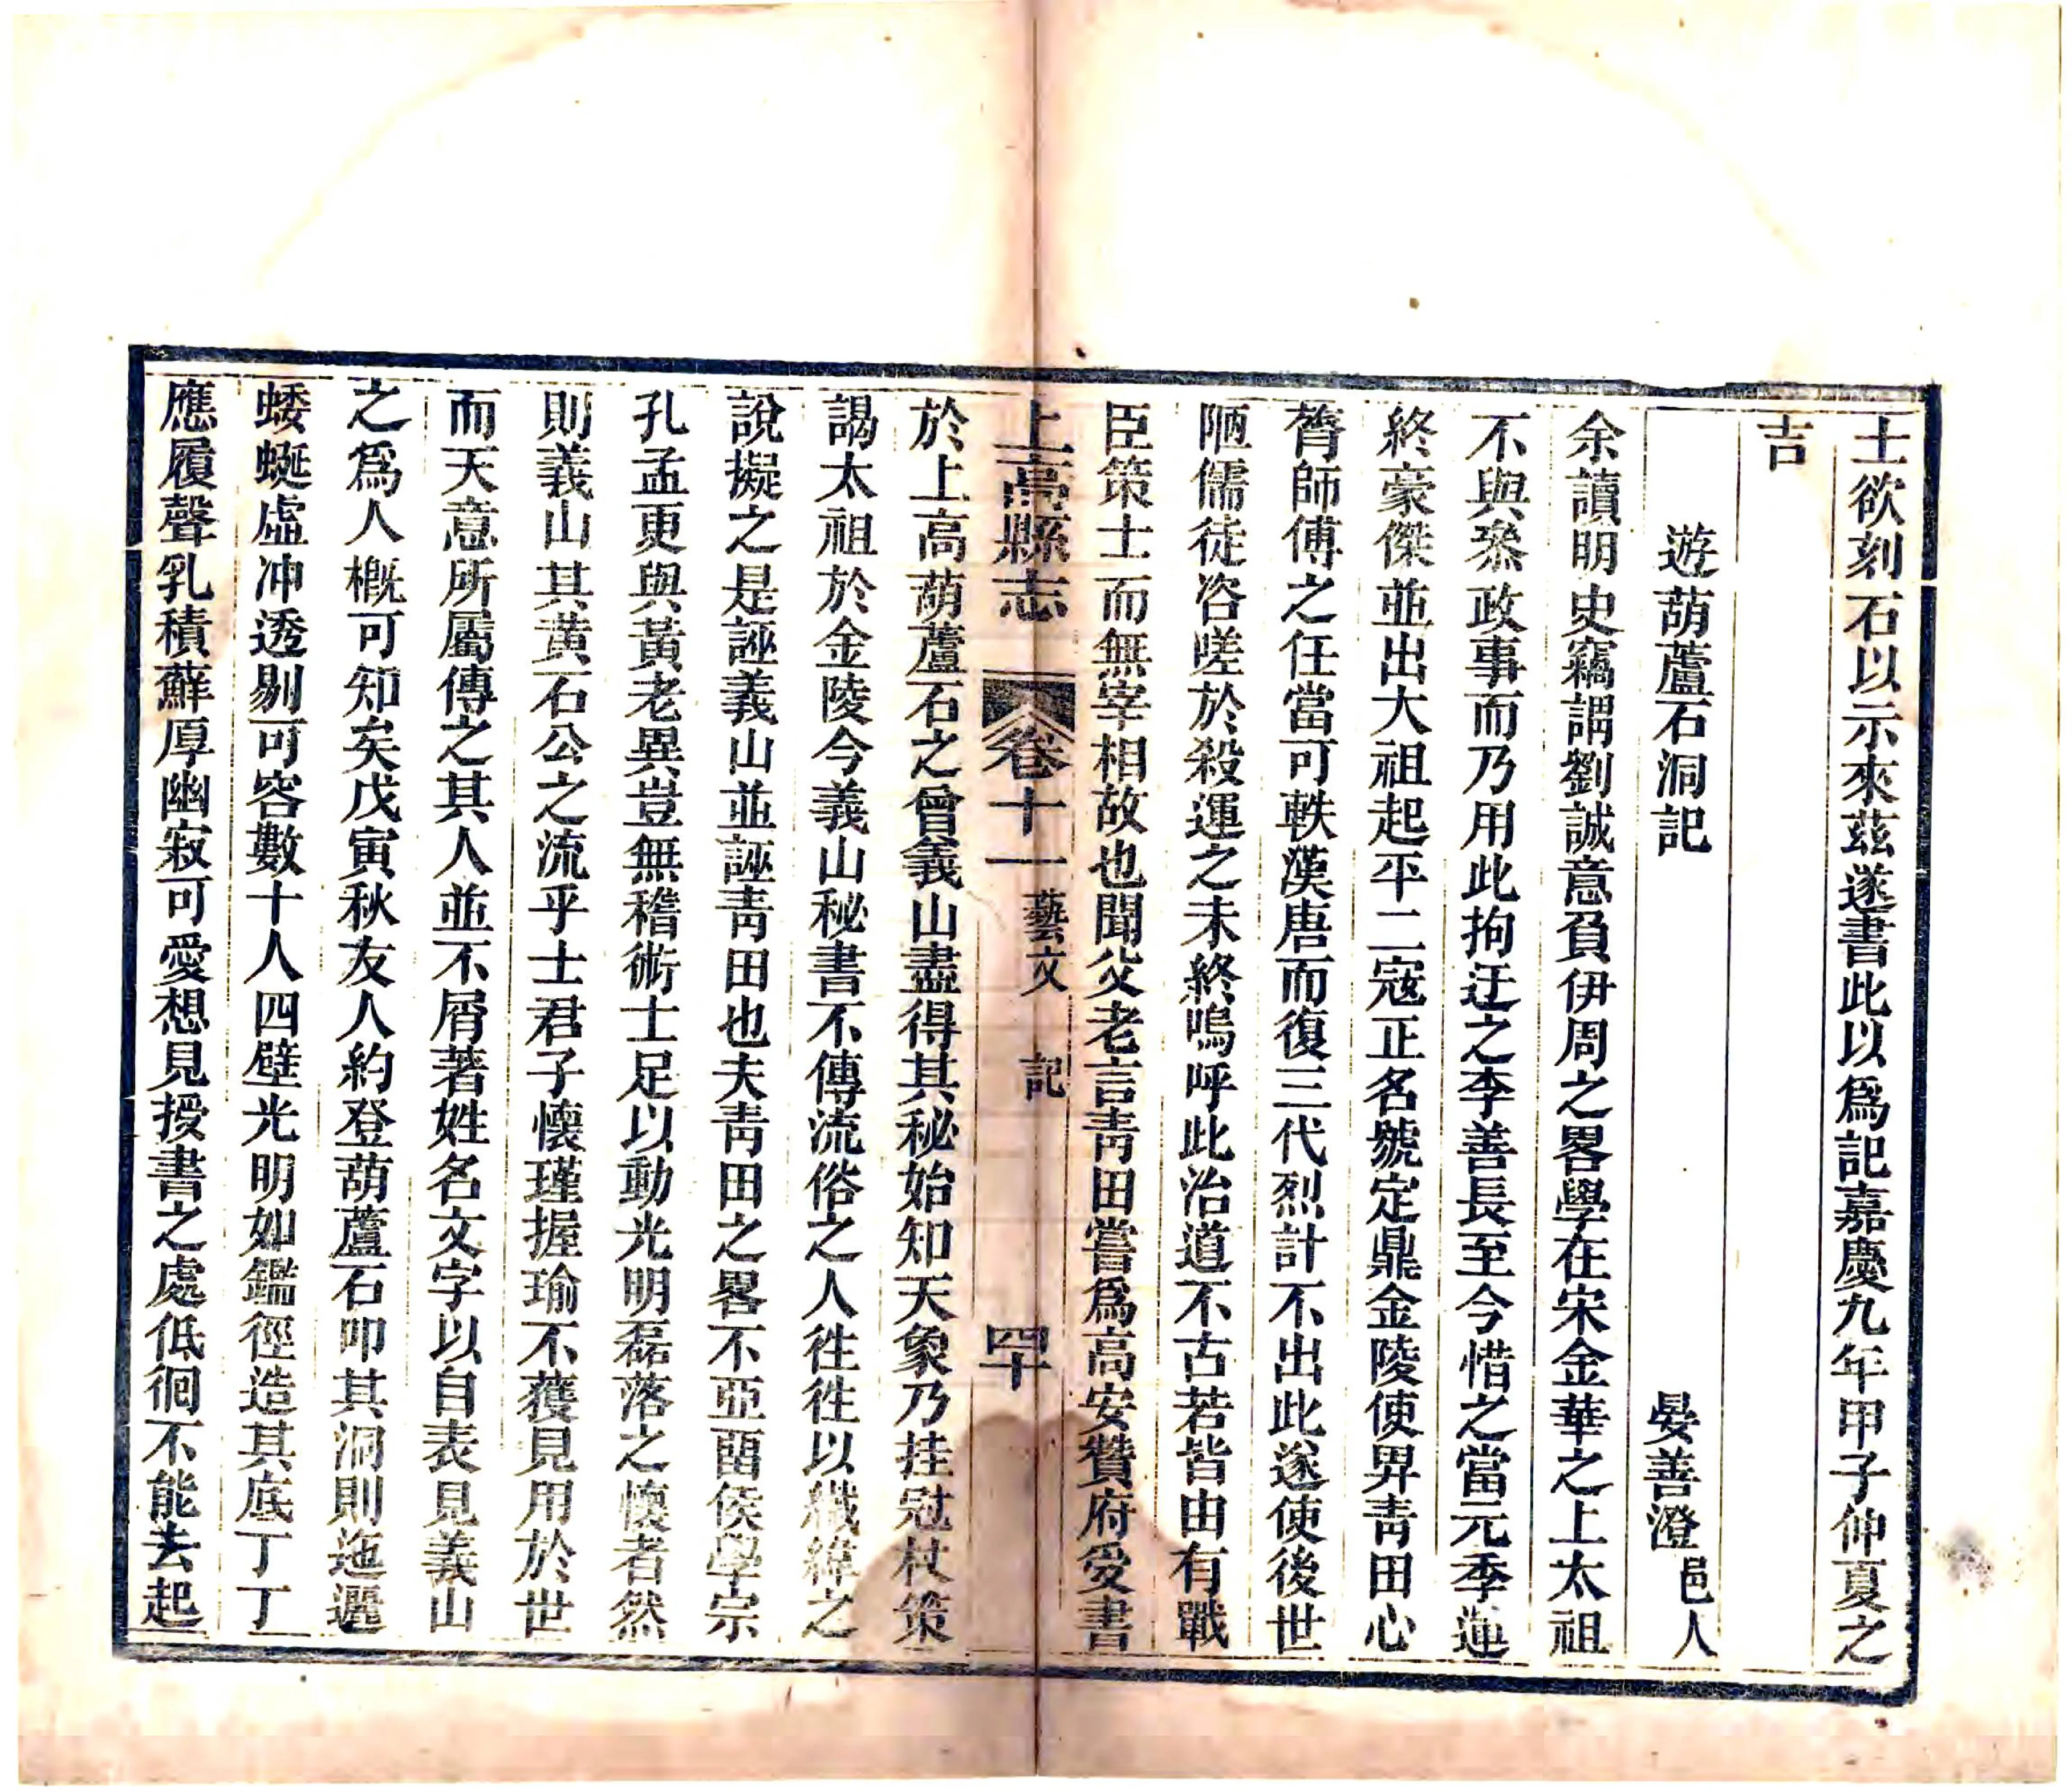 士欲刻石以示來茲遂書此以爲記嘉慶九年甲子仲夏之
吉
遊葫蘆石洞記　晏善澄邑人
余讀明史竊謂劉誠意負伊周之畧學在宋金華之上太祖
不與叅政事而乃用此拘迂之李善長至今惜之當元季運
終豪傑並出大祖起平二寇正名號定鼎金陵使畀青田心
膂師傅之任當可軼漢唐而復三代烈計不出此遂使後世
陋儒徒咨嗟於殺運之未終嗚呼此治道不古若皆由有戰
臣策士而無宰相故也聞父老言青田嘗爲高安贊府受書
上高縣志　卷十一　藝文　記　四十
於上高葫蘆石之曾義山盡得其秘始知天象乃挂冠杖策
謁太祖於金陵今義山秘書不傳流俗之人徃徃以讖緯之
說擬之是誣義山並誣靑田也夫靑田之畧不亞酉侯學宗
孔孟更與黃老異豈無稽術士足以動光明磊落之懷者然
則義山其黃石公之流乎士君子懷瑾握瑜不獲見用於世
而天意所屬傳之其人並不屑著姓名文字以自表見義山
之爲人槪可知矣戊寅秋友人約登葫蘆石叩其洞則迤邐
蜲蜒虛冲透剔可容數十人四壁光明如鑑徑造其底丁丁
應履聲乳積蘚厚幽寂可愛想見授書之處低徊不能去起